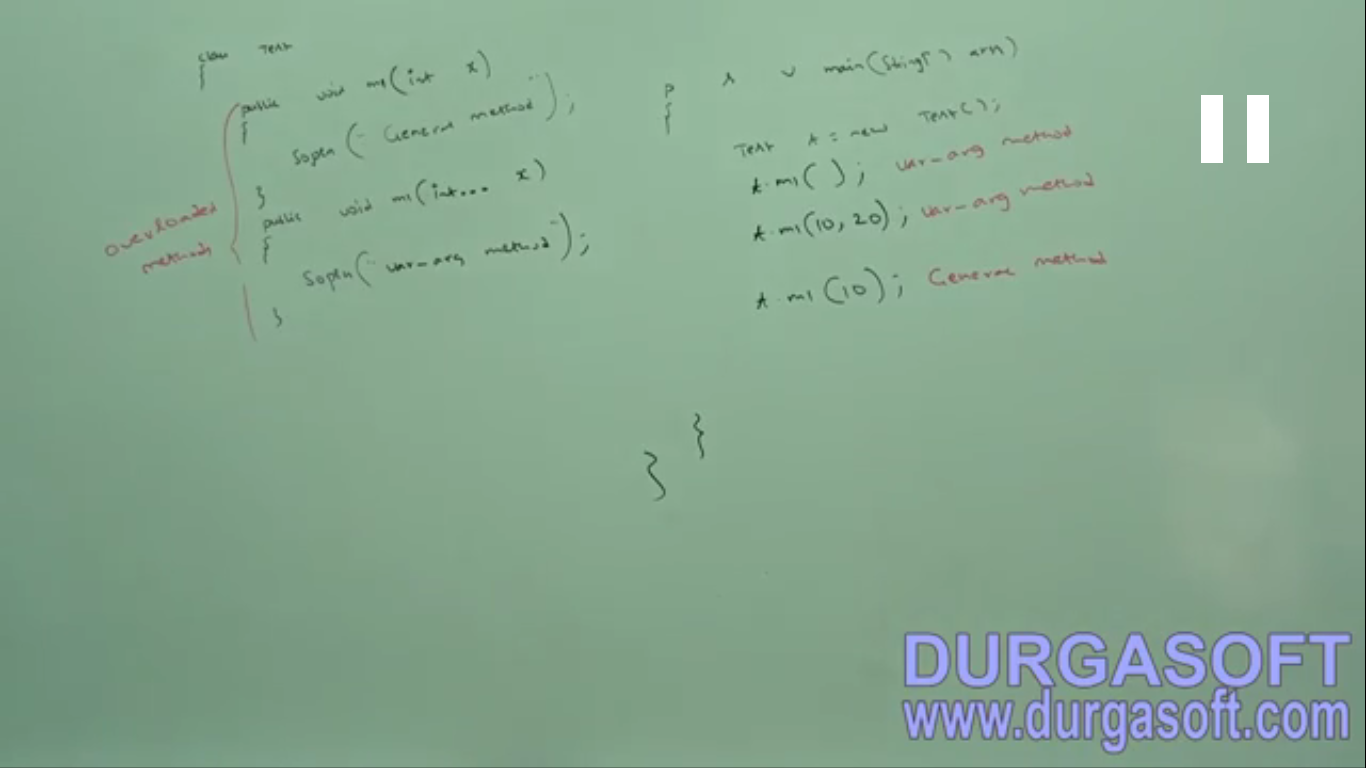 class Test
{
public void m1(int x)
{
Sopln("General method");
}
public void m1(int... x)
{
Sopln("var-arg method");
}
overloaded
methods
p s v main(String[] args)
{
Test t = new Test();
t.m1( ); var-arg method
t.m1(10, 20); var-arg method
t.m1(10); General method
}
}
DURGASOFT
www.durgasoft.com